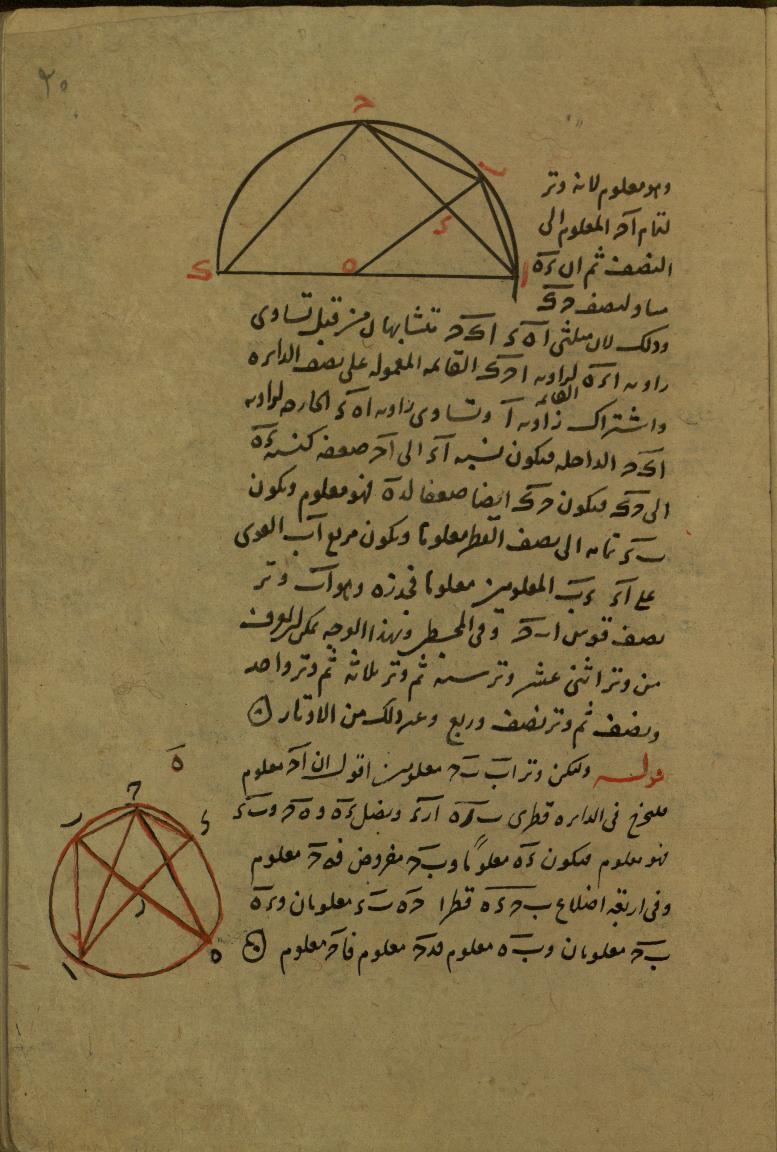 ٢٠
ح
ب
د
ه
ا
وهو معلوم لانه وتر
لتمام اح المعلوم الى
النصف ثم ان ءه
مساو لنصف حك
وذلك لان مثلثى اه ء اكح تتشابهان من قبل تساوى
زاويه اءه لزاويه احك القائمه المعموله على نصف الدايره
القائمه
واشتراك زاويه ا وتساوى زاويه اهء الخارجه لزاويه
اكح الداخله فيكون نسبه اء الى اح ضعفه كنسبه ءه
الى حك فيكون حك ايضا ضعفا لءه فهو معلوم ويكون
بء تمامه الى نصف القطر معلوما ويكون مربع اب القوى
على اء ءب المعلومين معلوما فجذره وهو اب وتر
نصف قوس ابح وفى المجسطى وبهذا الوجه يمكن المعرفه
من وتر اثنى عشر وتر سته ثم وتر ثلاثه ثم وتر واحد
ونصف ثم وتر نصف وربع وغير ذلك من الاوتار
ه
قوله وليكن وترا اب بح معلومين اقول ان اح معلوم
فنخرج فى الدايره قطرى بزه ارء ونصل ءه و هح وبء
فهو معلوم فيكون ءه معلوما وبح مفروض فهح معلوم
وفى اربعه اضلاع بحءه قطرا حه بء معلومان وءه
بح معلومان وبه معلوم فءح معلوم فاح معلوم
ح
ب
ء
ر
ا
ه